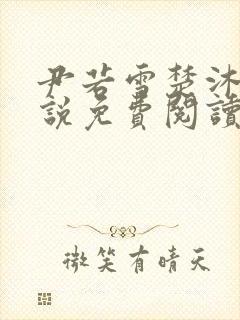 尹若雪楚沐
說免費閱讀
微笑有晴天